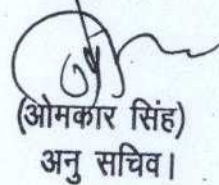 (ओमकार सिंह)
अनु सचिव।